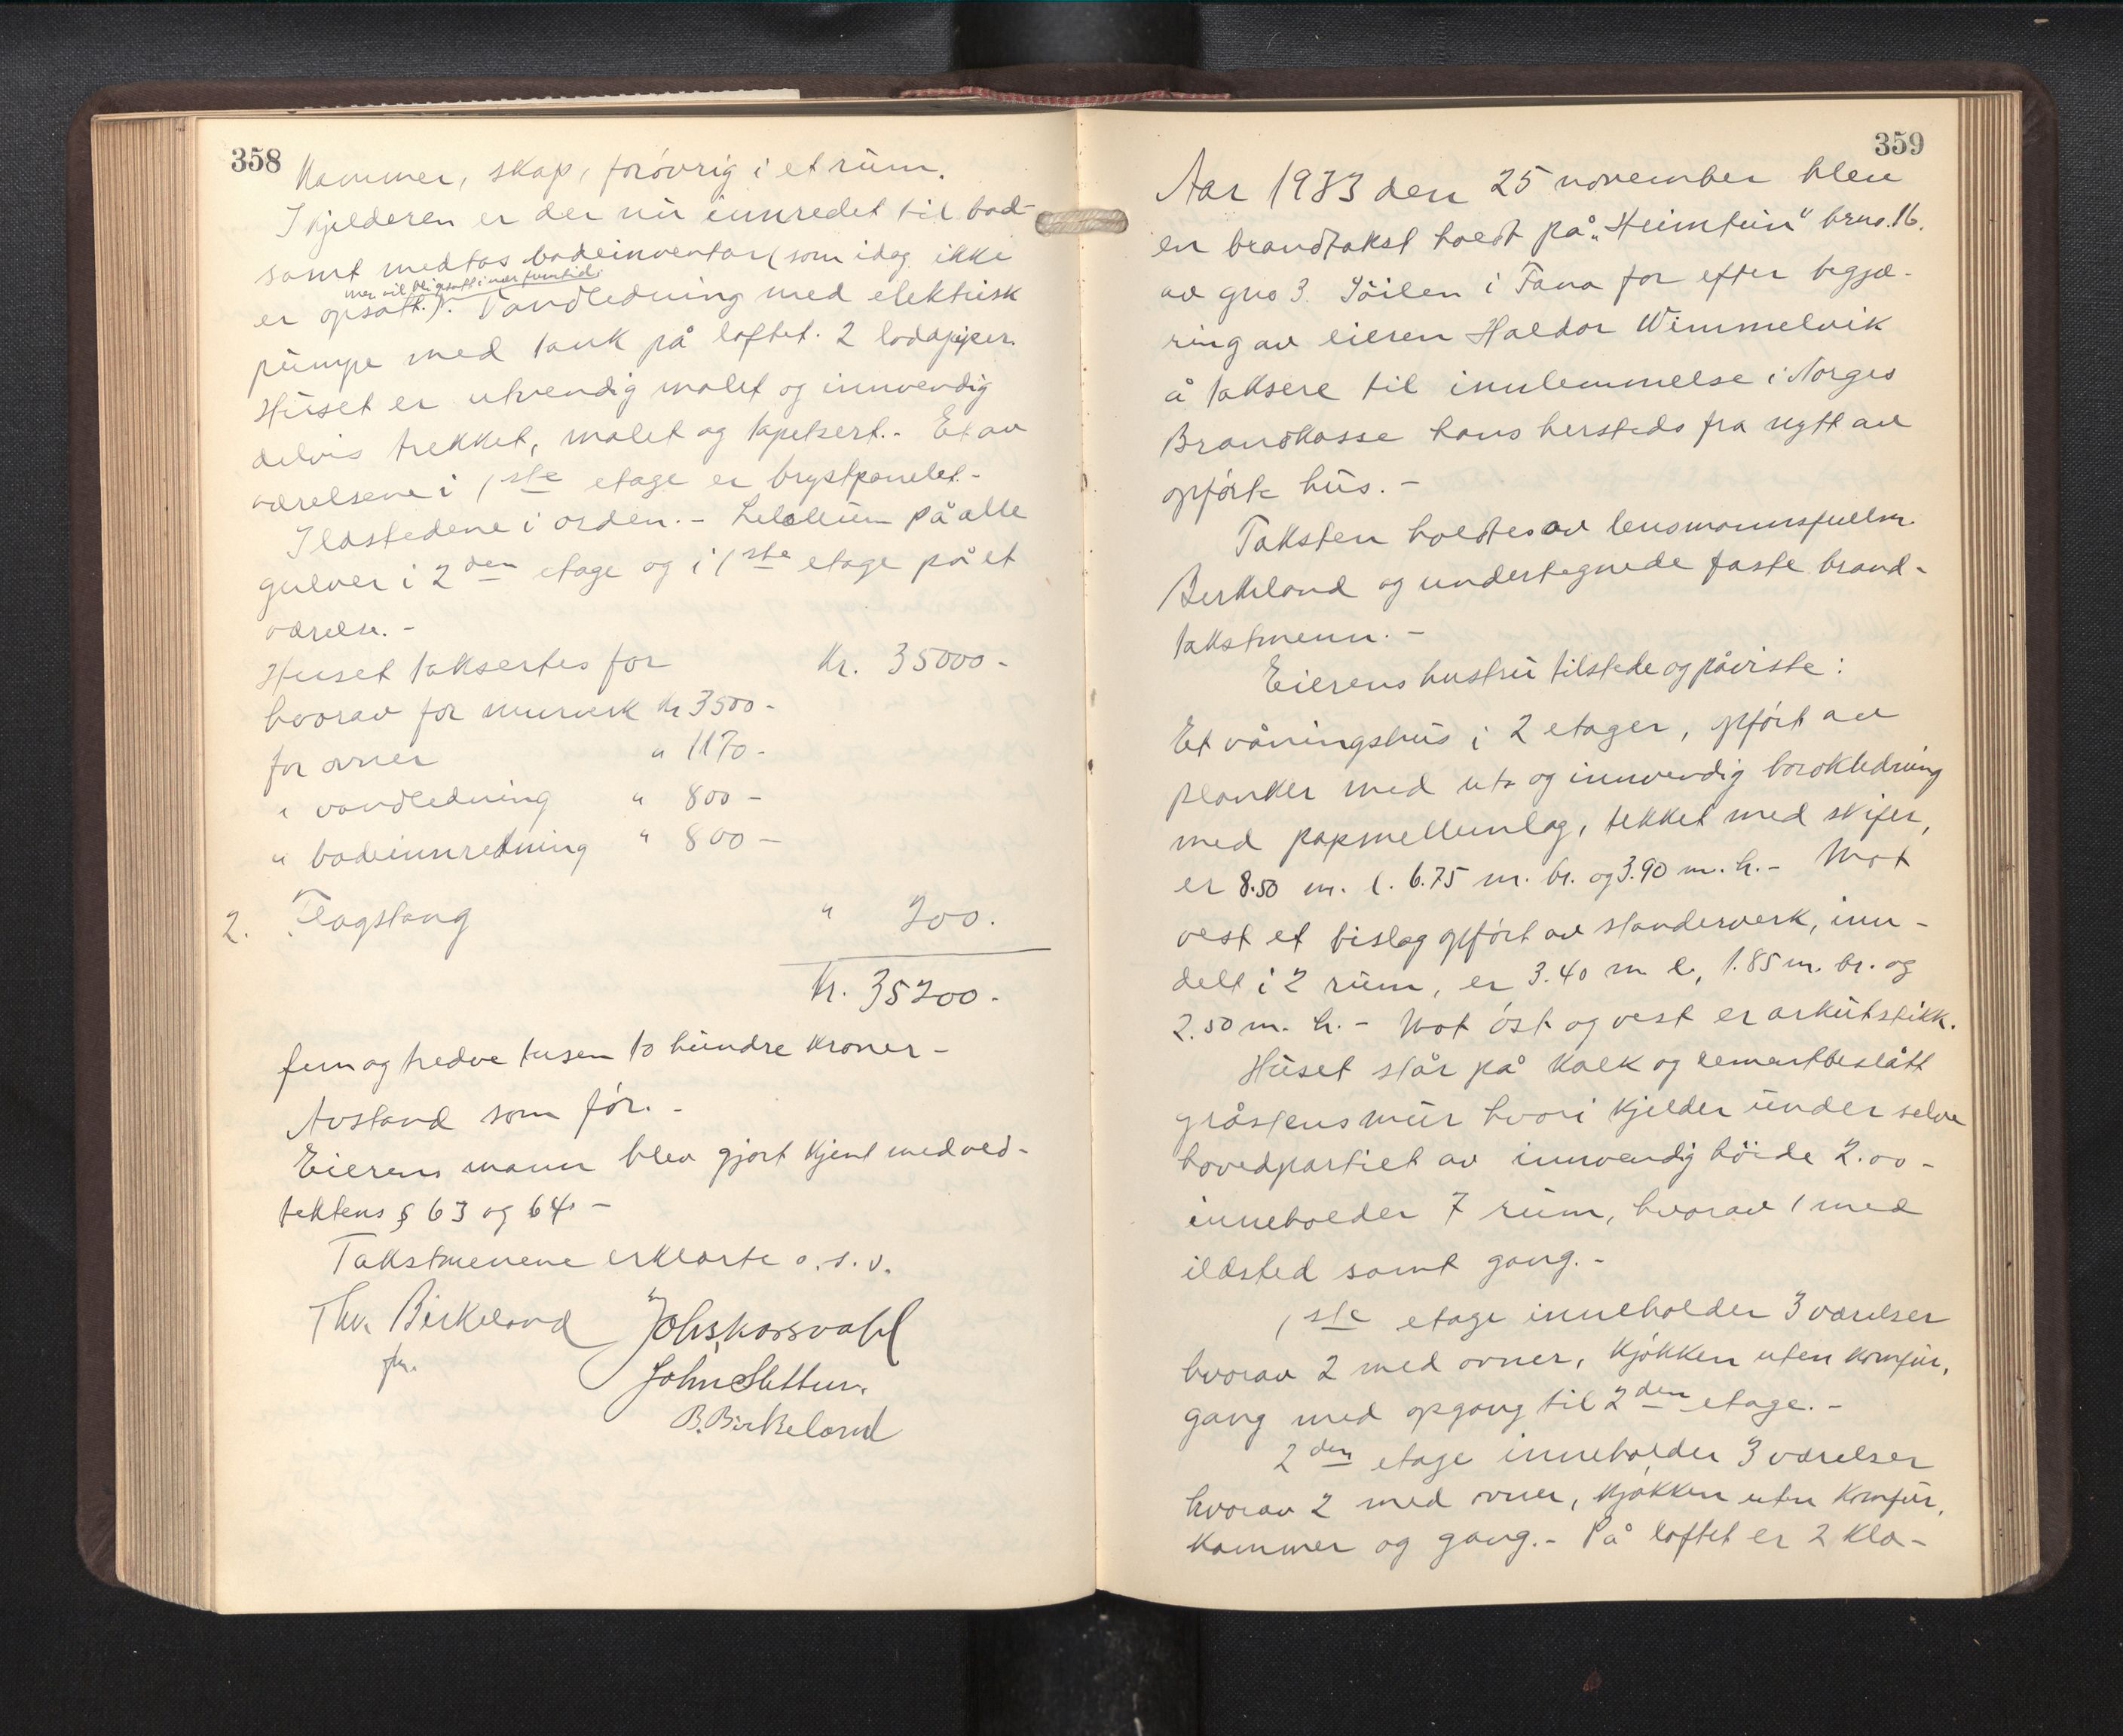 358
Kammer, skap, forøvrig i et rum.
I kjelderen er der nu innredet til bad-
samt medtas badeinventar (som idag ikke
men vil bli opsatt i nær fremtid
er opsatt.). Vandledning med elektrisk
pumpe med tank på loftet. 2 lodapiper.
Huset er utvendig malet og innvendig
delvis trekket, malet og tapetsert.- Et av
værelsene i 1ste etage er brystpanelet.-
Ildstedene i orden.- Lelolium på alle
gulver i 2den etage og i 1ste etage på et
værelse.-
Huset taksertes for Kr. 35000-
hvorav for murverk Kr 3500-
for ovner " 1170-
" vandledning " 800-
" badeinnredning " 800-
2. Flagstang " 200.
Kr. 35200-
fem og tredve tusen to hundre kroner-
Avstand som før.-
Eierens mann blev gjort kjent med ved-
tektens § 63 og 64.-
Takstmennene erklærte o.s.v.
Thv. Birkeland
fm.
John Slettun.
B. Birkeland
359
Aar 1933 den 25 november blev
en brandtakst holdt på "Heimtun" brno. 16.
av gno 3. Söilen i Fana for efter begjæ-
ring av eieren Haldor Wimmelvik
å taksere til innlemmelse i Norges
Brandkasse hans hersteds fra nytt av
opførte hus.-
Taksten holdtes av lensmannsfullm.
Birkeland og undertegnede faste brand-
takstmenn.-
Eierens hustru tilstede og påviste:
Et våningshus i 2 etager, opført av
planker med ut- og innvendig bordkledning
med papmellemlag, tekket med skifer,
er 8.50 m. l. 6.75 m. br. og 3.90 m. h.- Mot
vest et bislag opført av standerverk, inn-
delt i 2 rum, er 3.40 m l., 1.85 m. br. og
2.50 m. h.- Mot øst og vest er arkutstikk.
Huset står på kalk og sementbeslått
gråstensmur hvori kjelder under selve
hovedpartiet av innvendig höide 2.00-
inneholder 7 rum, hvorav 1 med
ildsted samt gang.-
1ste etage inneholder 3 værelser
hvorav 2 med ovner, kjøkken uten komfur,
gang med opgang til 2den etage.-
2den etage inneholder 3 værelser
hvorav 2 med ovner, kjøkken uten komfur,
kammer og gang.- På loftet er 2 kla-